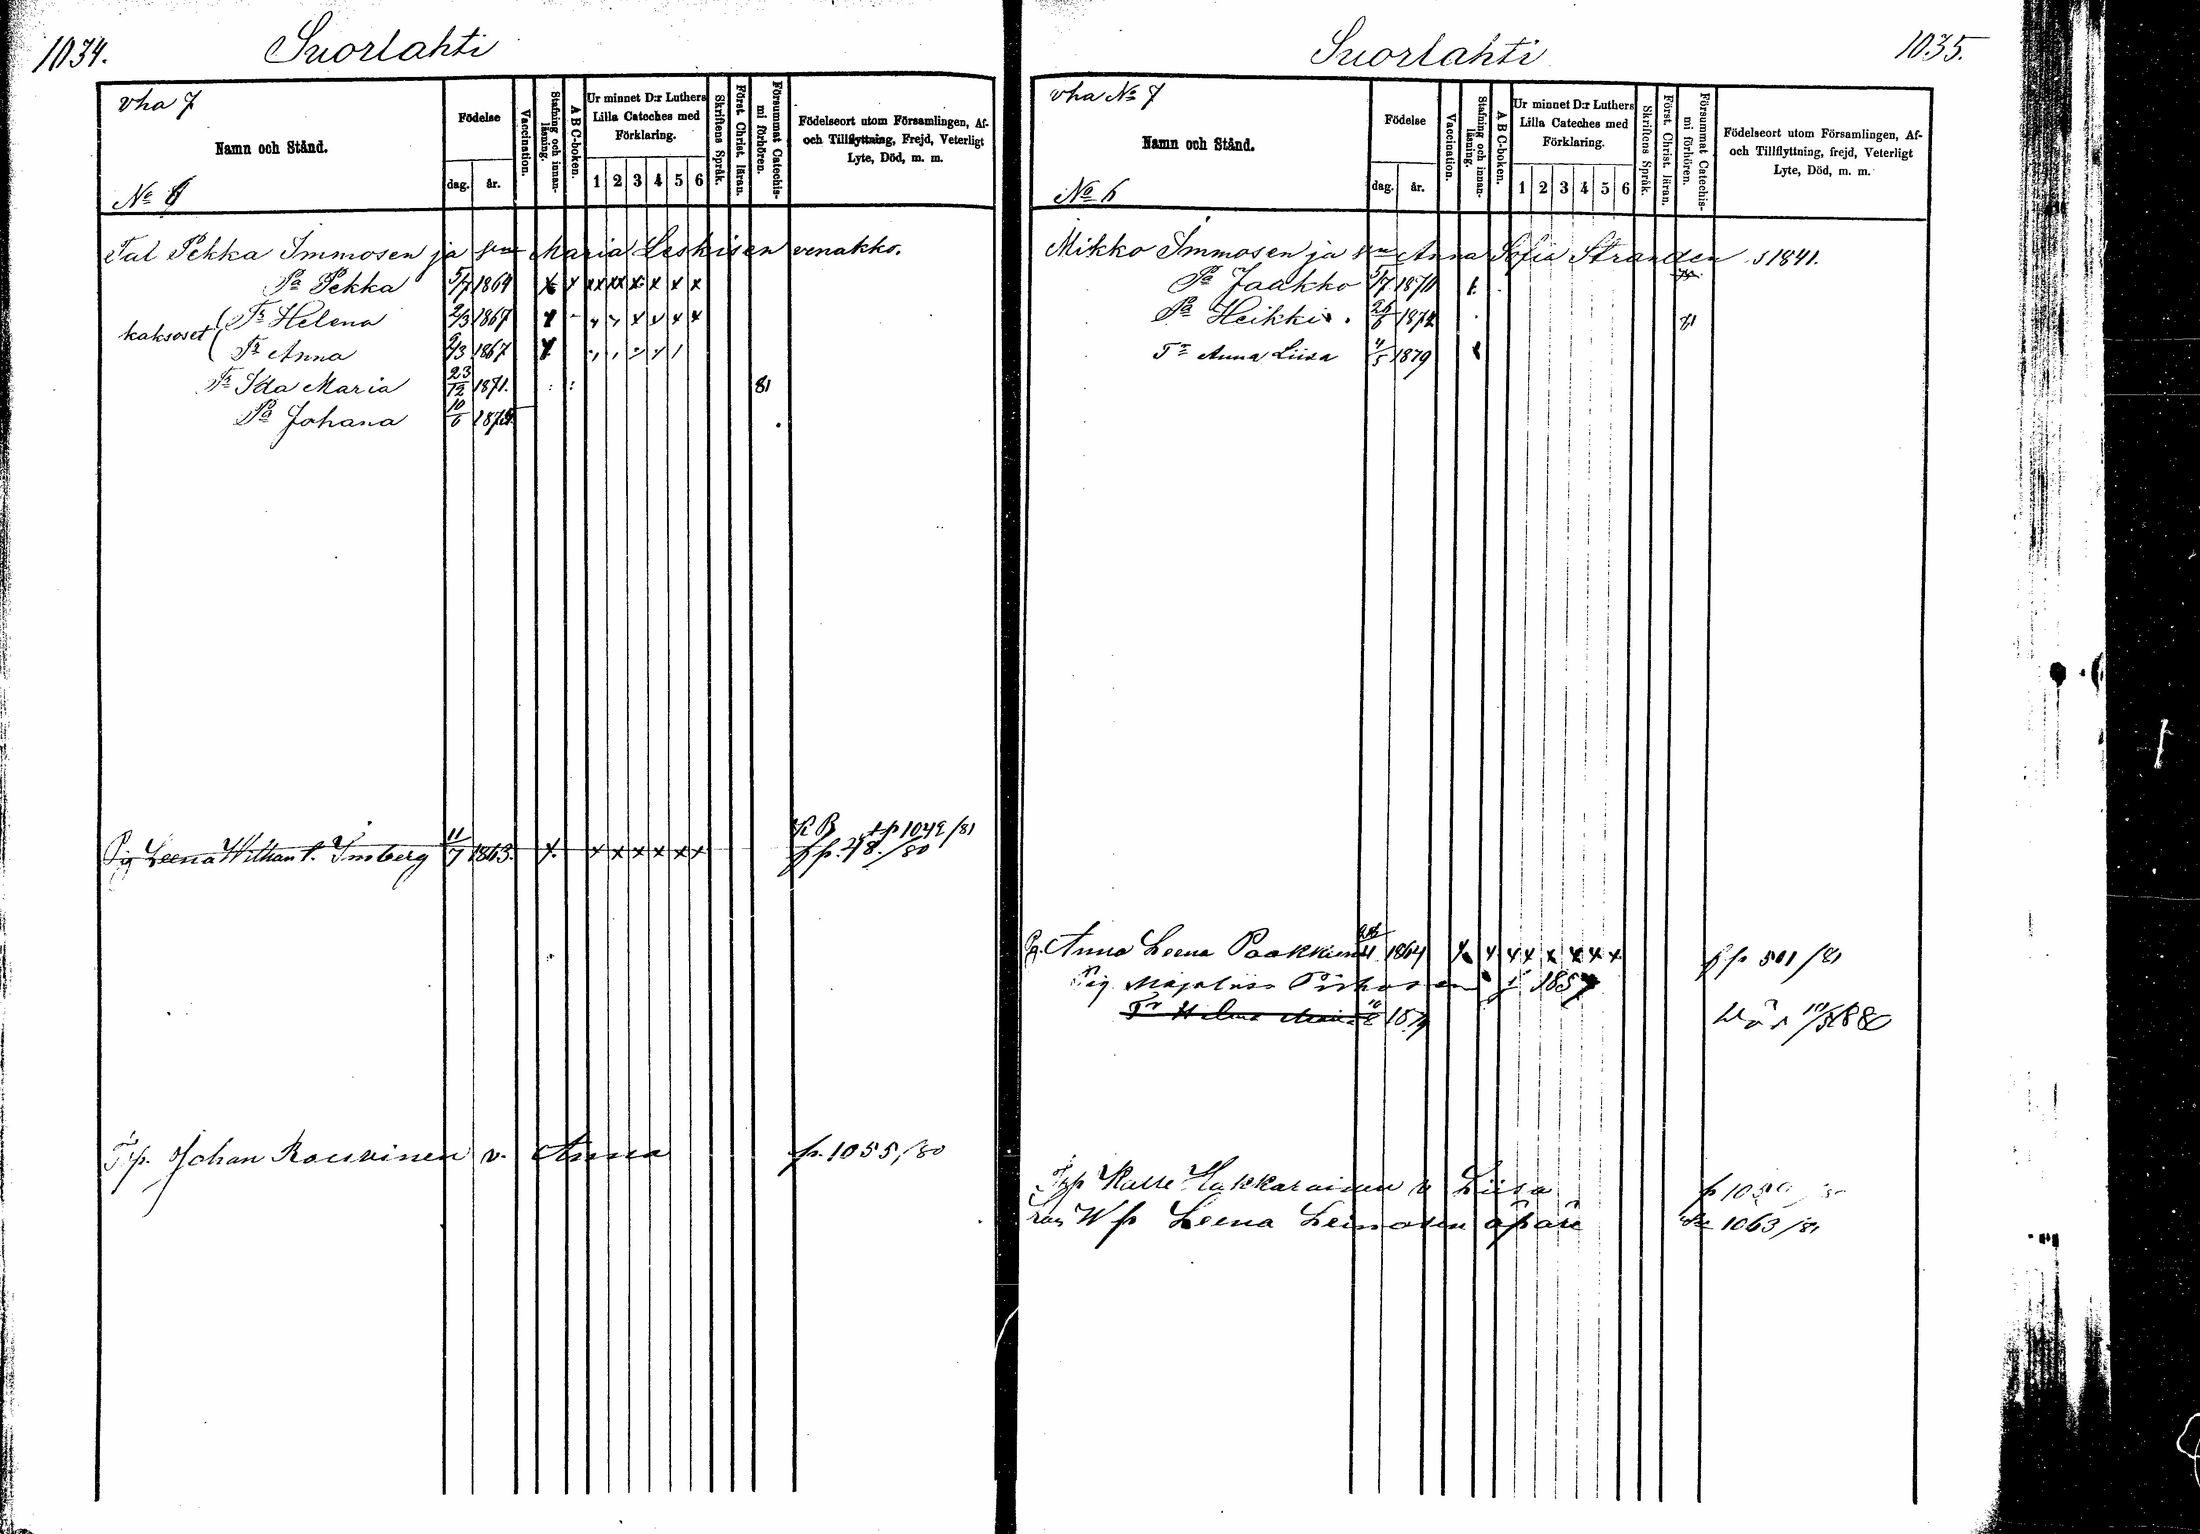 1034.
Suorlahti
vha 7
Namn och Stånd.
No 6
Födelse
dag.
år.
Vaccination.
Stafning och innan-läsning.
A B C-boken.
Ur minnet D:r Luthers
Lilla Cateches med
Förklaring.
1 2 3 4 5 6
Skriftens Språk.
Först. Christ. läran.
Försummat Catechis-
mi förhören.
Födelseort utom Församlingen, Af-
och Tillflyttning, Frejd, Veterligt
Lyte, Död, m. m.
Tal Pekka Immosen ja vmo Maria Leskisen venakko.
Pa Pekka 5/7 1864 x x xx xx x x x x
kaksoset
Tr Helena 2/3 1867
Tr Anna 2/3 1867
Tr Ida Maria 23/12 1871. 81
Pa Johana 10/6
K B tp 1042/81
Pig Leena Wilhan t. Imberg 11/7 1863. x. x x x x x x
Trp. Johan Rouvinen v. Anna p. 1055,/80
1035.
Suorlahti
vha No 7
Namn och Stånd.
No 6
Födelse
dag.
år.
Vaccination.
Stafning och innan-läsning.
A B C-boken.
Ur minnet D:r Luthers
Lilla Cateches med
Förklaring.
1 2 3 4 5 6
Skriftens Språk.
Först. Christ. läran.
Försummat Catechis-
mi förhören.
Födelseort utom Församlingen, Af-
och Tillflyttning, frejd, Veterligt
Lyte, Död, m. m.
Mikko Immosen ja vmo Anna Sofia Stranden s 1841.
Pa Jaakko
Pa Heikki 81
Tr Anna Liisa 4/5 1879
Pg. Anna Leena Paakkinen 1864 x x x x x x x x fp 501/81
Pig. Majaliisa 1857
Tr 10/5 1880
Kalle Hakkarainen v Liisa
Leena Leinosen äpärä 1063/81